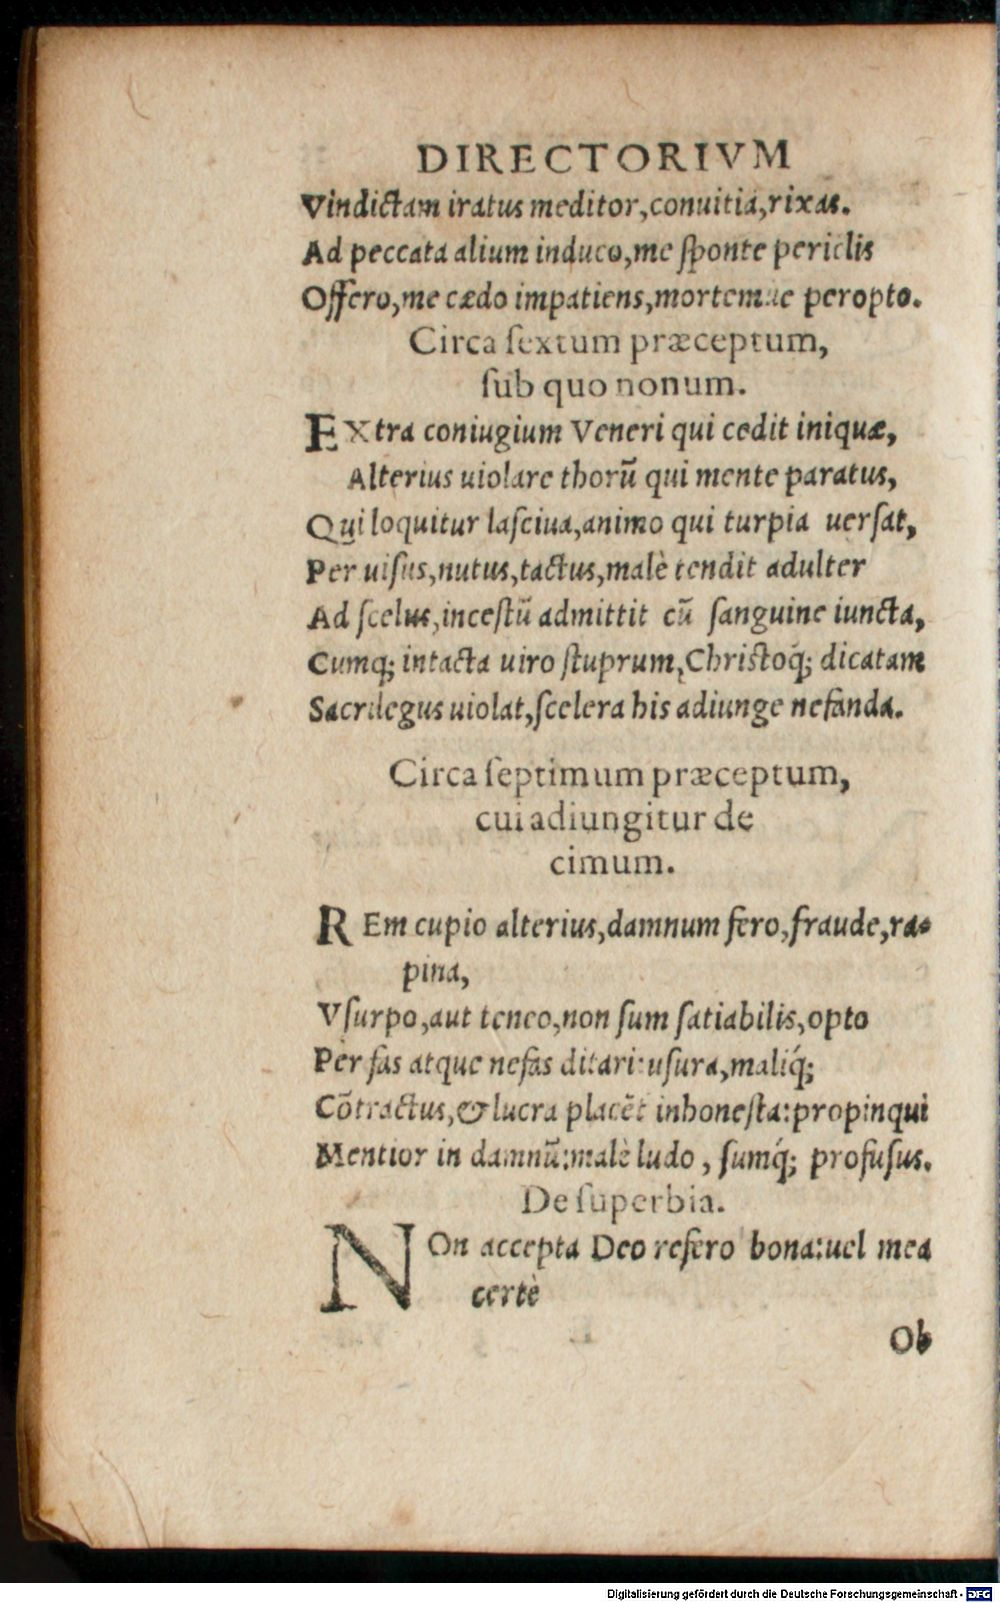 DIRECTORIVM
Vindictam iratus meditor,conuitia,rixas.
Ad peccata alium induco,me ſponte periclis
Offero,me cædo impatiens,mortemue peropto.
Circa ſextum præceptum,
ſub quo nonum.
EXtra coniugium Veneri qui cedit iniquæ,
Alterius uiolare thorũ qui mente paratus,
Qui loquitur laſciua,animo qui turpia uerſat,
Per uiſus,nutus,tactus,malè tendit adulter
Ad ſcelus,inceſtũ admittit cũ ſanguine iuncta,
Cumq; intacta uiro ſtuprum,Chriſtoq́; dicatam
Sacrilegus uiolat,ſcelera his adiunge nefanda.
Circa ſeptimum præceptum,
cui adiungitur de
cimum.
REm cupio alterius,damnum fero,fraude,ra-
pina,
Vſurpo,aut teneo,non ſum ſatiabilis,opto
Per fas atque nefas ditari:uſura,maliq́;
Cõtractus,& lucra placẽt inhoneſta:propinqui
Mentior in damnũ:malè ludo, ſumq́; profuſus.
De ſuperbia.
NOn accepta Deo refero bona:uel mea
certè
Ob
Digitalisierung gefördert durch die Deutsche Forschungsgemeinschaft - DFG